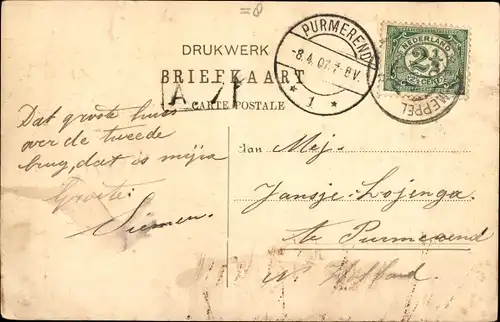 =8
DRUKWERK
BRIEFKAART
CARTE POSTALE
PURMEREND
-8.4.07.7-8V.
* 1 *
NEDERLAND
2½
CENT
MEPPEL
Dat groote huis
over de tweede
brug, dat is mijn
Groete
Siemen.
Aan Mej.
Jansje Lojenga.
te Purmerend
N. Holland